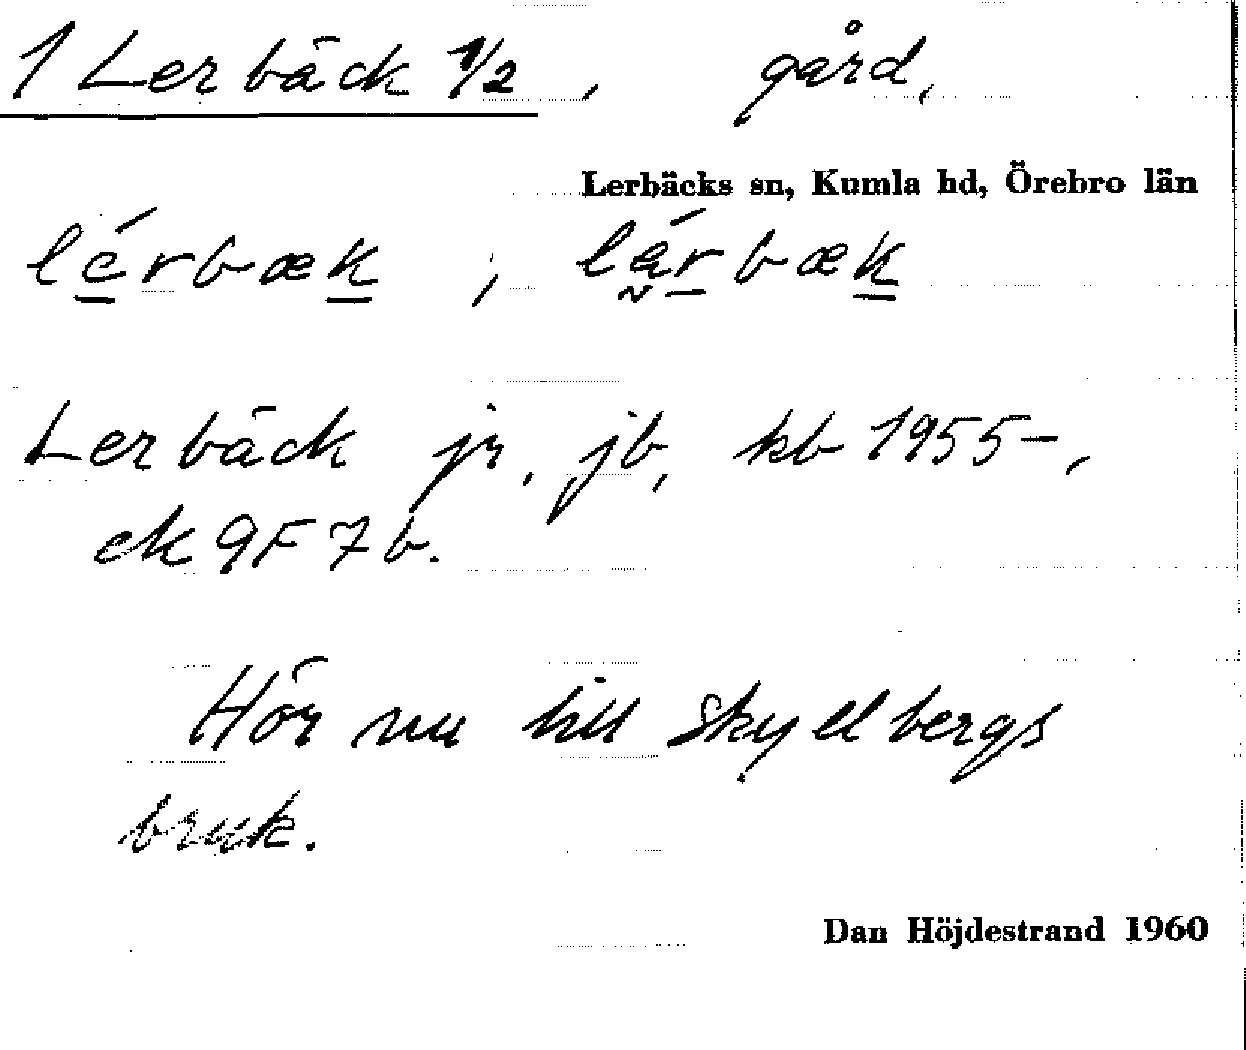 1 Lerbäck 1/2, gård,
Lerbäcks sn, Kumla hd, Örebro län
lérbæk, lárbæk
Lerbäck jr, jb, kb 1955-,
ek 9F7b.
Hör nu till Skyllbergs
bruk.
Dan Höjdestrand 1960